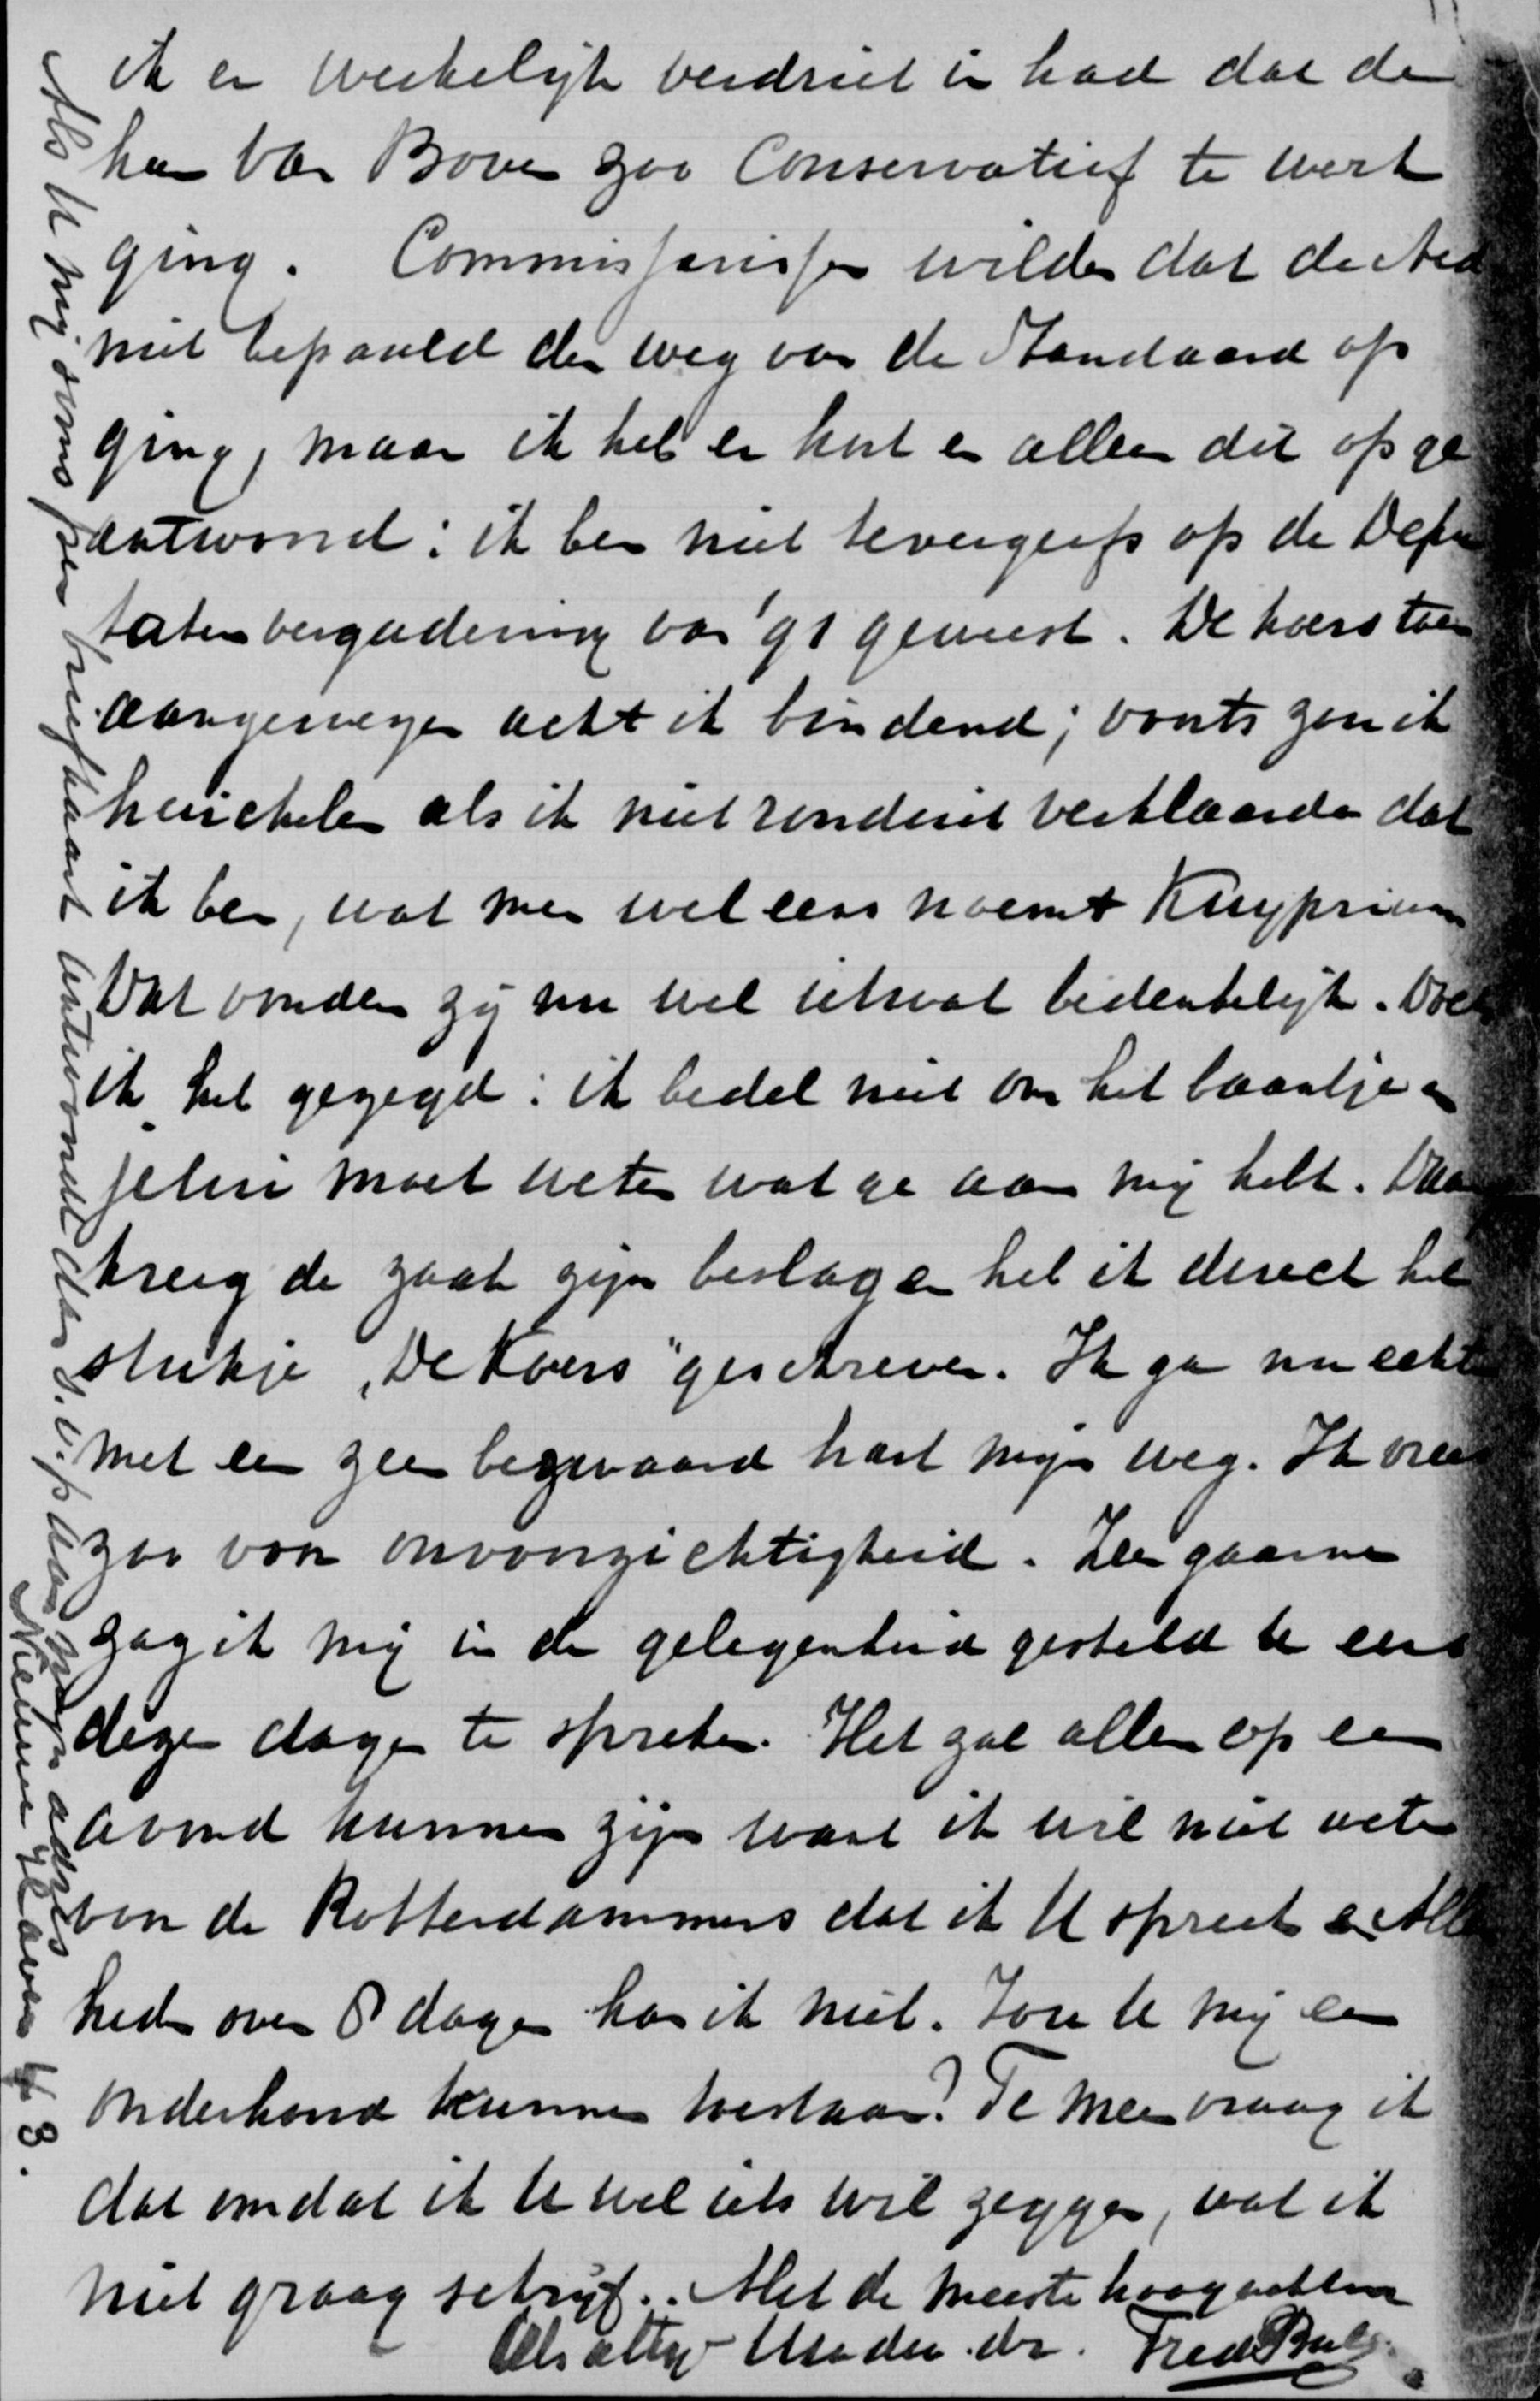 ik er werkelijk verdriet in had dat de
han van Boven zoo Conservatief te werk
ging. Commissarissen wilden dat de Ned
niet bepaald den weg van de Standaard op
ging, maar ik heb er kort en alleen dit op ge
antwoord: ik ben niet tevergeefs op de Depu
tatenvergadering van '91 geweest. De koers toen
aangewezen acht ik bindend; voorts zou ik
huichelen als ik niet ronduit verklaarde dat
ik ben, wat men wel eens noemt Kuypriaan
Dat vonden zij nu wel ietwat bedenkelijk. Doch
ik heb gezegd: ik bedel niet om het baantje en
jelui moet weten wat ge aan mij hebt. Daar
kreeg de zaak zijn beslag en heb ik direct het
stukje "De Koers" geschreven. Ik ga nu echt
met een zeer bezwaard hart mijn weg. Ik vrees
zoo voor onvoorzichtigheid. Zeer gaarne
zag ik mij in de gelegenheid gesteld U eens
dezer dagen te spreken. Het zal alleen op een
avond kunnen zijn want ik wil niet weten
voor de Rotterdammers dat ik U spreek en
heden over 8 dagen kan ik niet. Zou U mij een
onderhoud kunnen toestaan? Te meer vraag ik
dat omdat ik U wel iets wil zeggen, wat ik
niet graag schrijf.. Met de meeste hoogachting
Als altijd Uw dw. dr. Fred Bul
Als U mij soms per briefkaart antwoordt dan s.v.p. aan mijn adres
Nieuwe Haven 43.